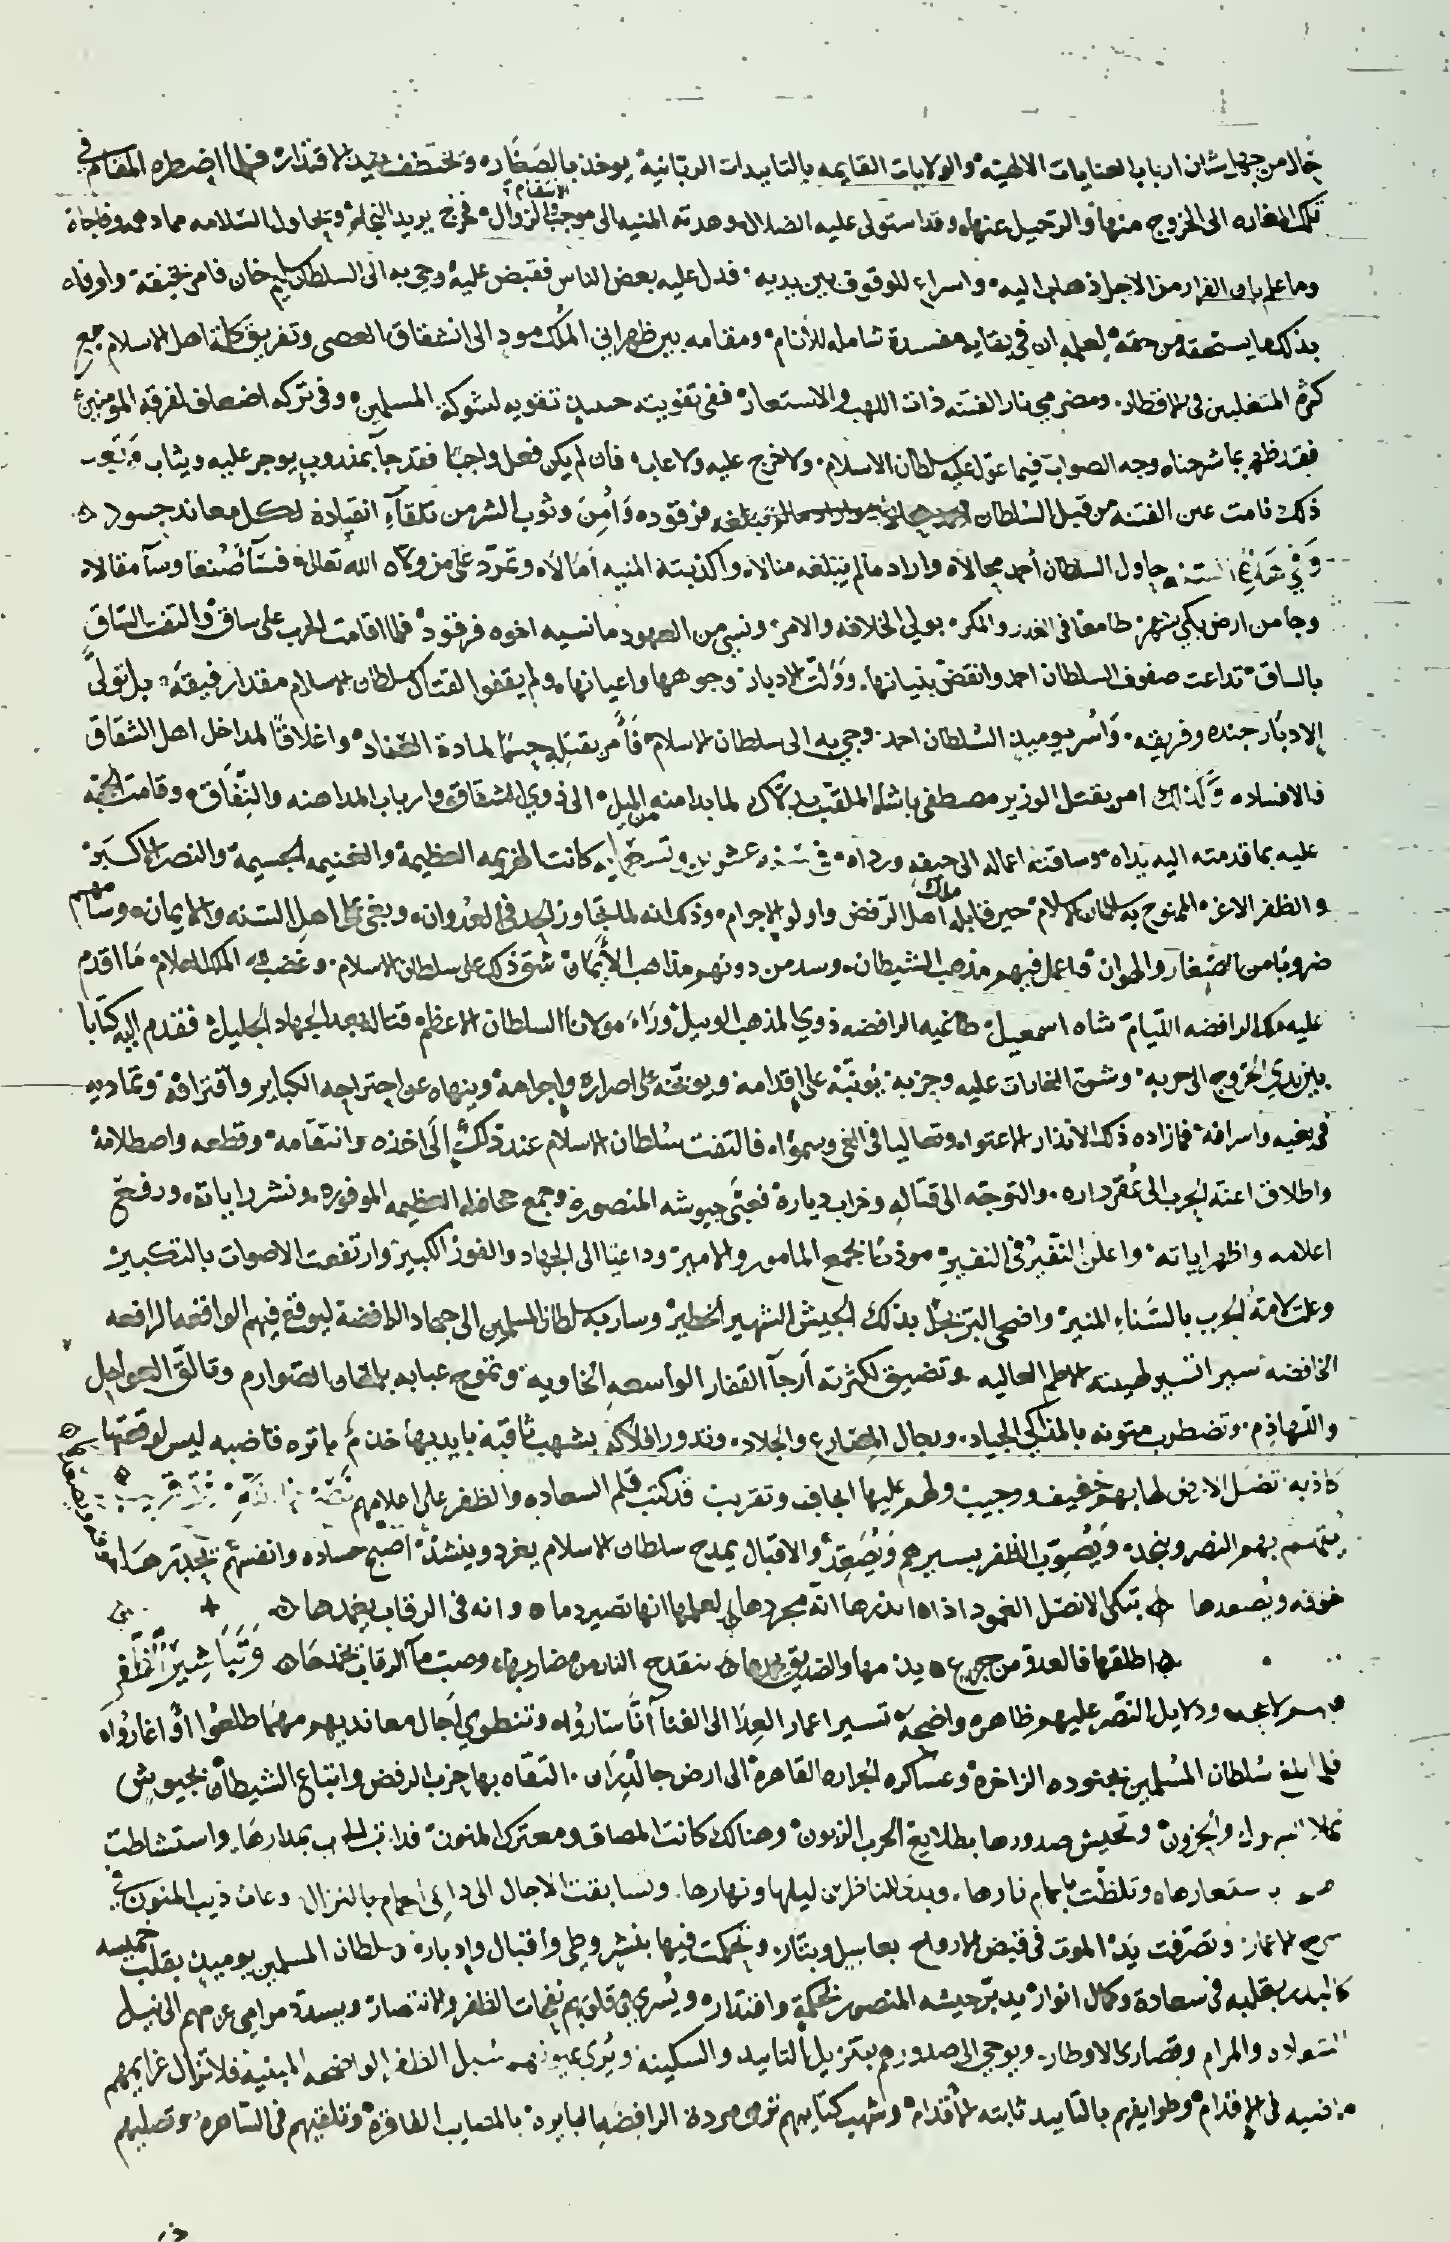 حال من جهل شان ارباب العنايات الالهية والولايات القايمه بالتاييدات الربانية يوخذ بالصغار وتختطف بيد الاقتدار فلما اضطره المقام في
تلك المغاره الى الخروج منها والرحيل عنها وقد استولى عليه الضلال وهدته المنيه الى موجب الزوال فخرج يريد النجاه ويحاول السلامه مما دهمه وفاجاه
الانتقام
وما علم بان الفرار من الاجل ذهاب اليه واسراع للوقوف بين يديه فدل عليه بعض الناس فقبض عليه وجي به الى السلطان سليم خان فامر بخنقه واوفاه
بذلك ما يستحقه من حقه لعلمه ان في بقايه مفسدة شامله للأنام ومقامه بين ظهراني الملك مود الى انشقاق العصى وتفريق كلمة اهل الاسلام جميع
كثرة المتغلبين في الاقطار ومضرمي نار الفتنه ذات اللهب والاستعار ففي تفويته حينيذ تقويه لشوكة المسلمين وفي تركه اضعاف لفرقة المومنين
فقد ظهر بما شرحناه وجه الصواب فيما عول عليه سلطان الاسلام ولا حرج عليه ولا عاب فان لم يكن فعل واجبا فقد جآ بمندوب يوجر عليه ويثاب
ذلك نامت عين الفتنة من قبل السلطان قرقود وأمن وثوب الشر من تلقآء انقياده لكل معاند حسود
حاول السلطان أحمد محالا واراد ما لم يبتلغه منالا واكذبته المنيه آمالا وتمرد على من ولاه الله تعالى فسآ صنعا وسآ مقالا
وجا من ارض يكي شهر طامعا في الغدر والمكر بولي الخلافه والامر ونسي من العهود ما نسيه اخوه قرقود فلما اقامت الحرب على ساق والتفت الساق
بالساق تداعت صفوف السلطان احمد وانقض بنيانها وولت الادبار وجوهها واعيانها ولم يقفوا لقتال سلطان الاسلام مقدار فيقه بل تولى
الادبار جنده وفريقه وأسر يوميذ السلطان احمد وجي به الى سلطان الاسلام فأمر بقتله حسما لمادة العناد واغلاقا لمداخل اهل الشقاق
فالافساد وكذلك امر بقتل الوزير مصطفى باشا الملقب لما بدا منه من الميل الى ذوي الشقاق وارباب المداهنه والنفاق وقامت الحجة
عليه بما قدمته اليه يداه وساقته اعماله الى حيفه ورداه في سنه عشرين وتسعمايه كانت الهزيمه العظيمة والغنيمه الجسيمة والنصر الاكبر
والظفر الاغر الممنوح به سلطان الاسلام حين قابله ملاك أهل الرفض واولوا الاجرام وذلك انه لما تجاوز الحد في العدوان وبغى على اهل السنه والايمان وسامهم
ضروبا من الصغار والهوان فاعمل فيهم مذهب الشيطان وسد من دونهم مذاهب الأيمان شق ذلك على سلطان الاسلام وغضب لله الملك العلام ما اقدم
عليه ملك الرافضه الليام شاه اسمعيل طاغيه الرافضه ذوي المذهب الوبيل وراء مولانا السلطان الاعظم قتاله بعد الجهاد الجليل فقدم اليه كتابا
بين يدي الخروج الى حربه وشن الغارات عليه وحزبه يونبه على اقدامه ويوبخه على اصراره واجرامه وينهاه عن اجتراحه الكباير واقترافه وتماديه
في بغيه واسرافه فما زاده ذلك الانذار الا عتوا وتعاليا في الغي وسموا فالتفت سلطان الاسلام عند ذلك الى اخذه وانتقامه وقطعه واصطلامه
واطلاق اعنة الحرب الى عقر داره والتوجه الى قتاله وخراب دياره فعبى جيوشه المنصوره وجمع جحافله العظيمه الموفوره ونشر راياته ورفع
اعلامه واظهر اياته واعلن النفير في النفير موذنا بجمع المامور والامير وداعيا الى الجهاد والفوز الكبير وارتفعت الاصوات بالتكبير
وعلت لامة الحرب بالسناء المنير واضحى البر بذلك الجيش الشهير الخطير وسار به سلطان المسلمين الى جهاد الرافضة ليوقع فيهم الواقعه الرافعه
الخافضه سيرا تسير طيه العاليه وتضيق لكثرته أرجآ القفار الواسعه الخاويه وتموج عبابه بالصوارم وتالق العواجل
واللهاذم وتضطرب متونه بالمذاكي الجياد ورجال المصارع والجلاد وتدور افلاكه بشهب ثاقبة بايديها خذم باتره قاضبه ليس لوقعتها
كاذبه تضل الارض لها بهم خفيف ووجيب ولهم عليها ايجاف وتقريب قد كتب قلم السعاده والظفر على اعلامهم نصر من الله وفتح قريب
بهم النصر وينجد ويصوب الظفر بسيرهم ويصعد والاقبال يمدح سلطان الاسلام يغرد وينشد اصبح حساده وانفسهم
خوفه ويصعدها تبكي الانصل الغمود اذا انذرها انه مجردها لعلمها انها تصير دما وانه في الرقاب يغمدها
اطلقها فالعدو من جزع يذمها والصديق يحمدها تنقدح النار من مضاربها وصب مآ الرقاب يخمدها وتباشير الظفر
لايحه ودلايل النصر عليهم ظاهره واضحة تسير اعمار العدا الى الفنا أنا ساروا وتنطوي آجال معانديهم مهما طلعوا أو اغاروا
فلما بلغ سلطان المسلمين بجنوده الزاخرة وعساكره الجراره القاهره الى ارض جالديران التقاه بها حزب الرفض واتباع الشيطان بجيوش
تملا السهول والحزون وتجيش صدورها بطلايع الحرب الزبون وهنالك كانت المصاف ومعترك المنون فدارت الحرب بمدارها واستشاطت
استعارها وتلظت نارها وتسابقت الاجال الى داعي الحمام بالنزال
سرح الاعمار وتصرفت يد الموت في قبض الارواح بعاسل وبتار وتحكمت فيها بنشر وطي واقبال وادبار وسلطان المسلمين يوميذ بقلب خميسه
كالبدر بقلبه في سعادة وكمال انوار يدبر جيشه المنصور بحكمة واقتدار ويسري في قلوبهم نفحات الظفر والانتصار ويسدد مرامي عزمهم الى نيل
والمرام وقصارى الاوطار ويوحي الى صدورهم بتنزيل التاييد والسكينه ويري عيونهم سبل الظفر الواضحه المبينه فلا تزال عزايمهم
ماضيه في الاقدام وطوايفهم بالتاييد ثابته الاقدام وشهب كتايبهم ترمي مردة الرافضه الجايره بالمصايب الفاقرة وتلقيهم في الساهره وتصليهم